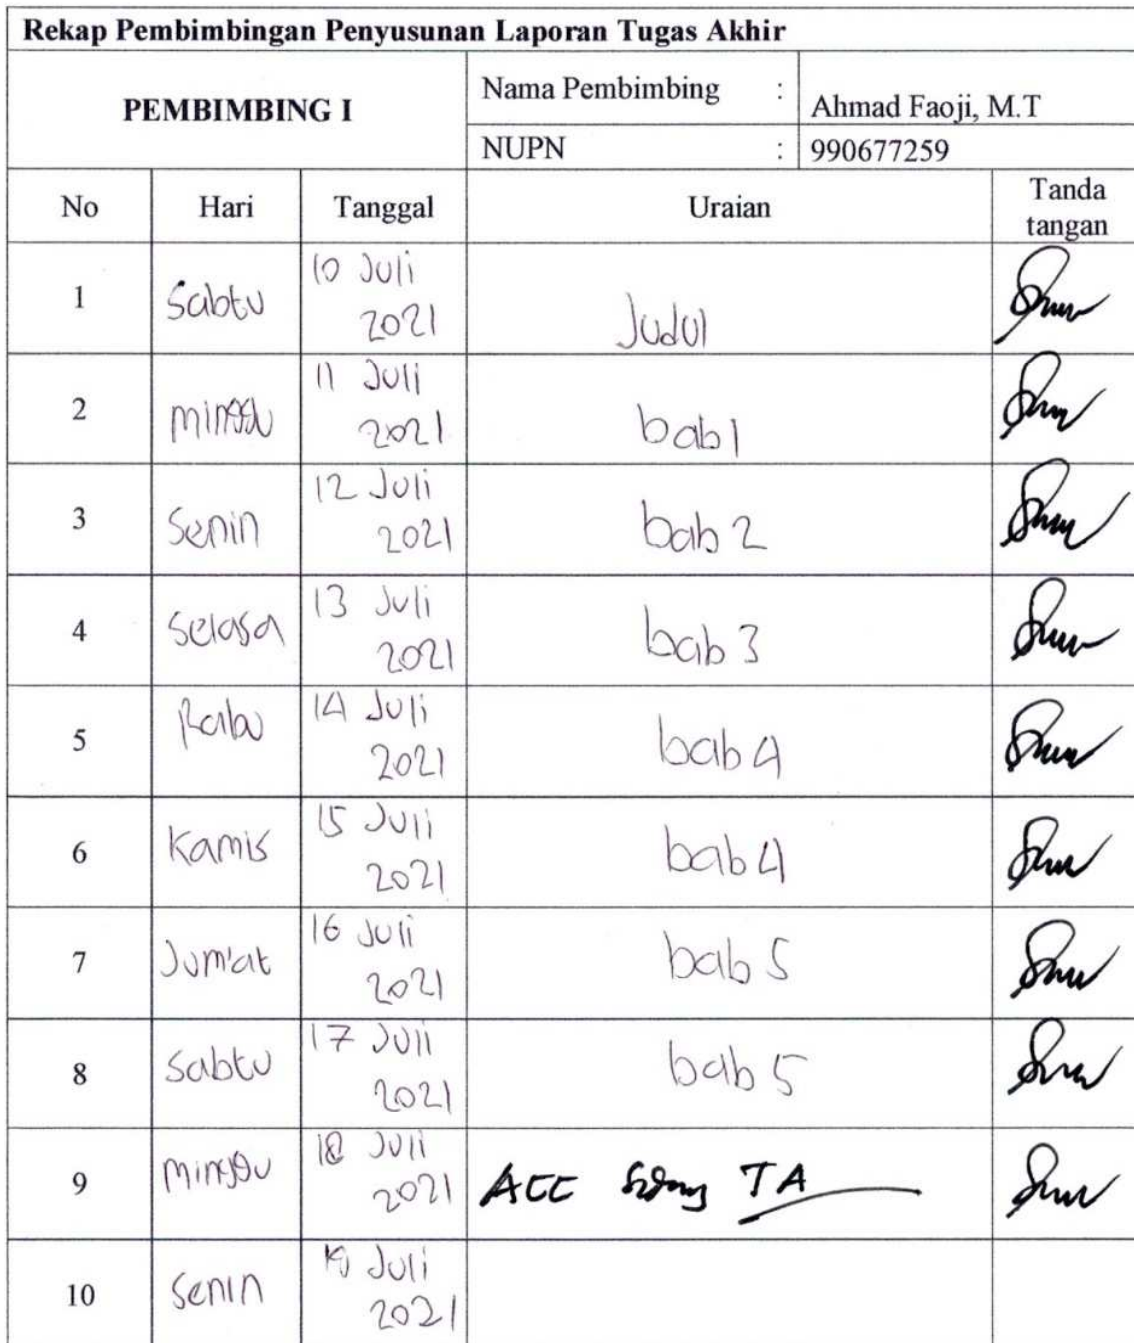 Rekap Pembimbingan Penyusunan Laporan Tugas Akhir
PEMBIMBING I
Nama Pembimbing : Ahmad Faoji, M.T
NUPN : 990677259
No Hari Tanggal Uraian Tanda tangan
1 Sabtu 10 Juli 2021 Judul
2 minggu 11 Juli 2021 bab 1
3 Senin 12 Juli 2021 bab 2
4 Selasa 13 Juli 2021 bab 3
5 Rabu 14 Juli 2021 bab 4
6 Kamis 15 Juli 2021 bab 4
7 Jum'at 16 Juli 2021 bab 5
8 Sabtu 17 Juli 2021 bab 5
9 minggu 18 Juli 2021 ACC Sidang TA
10 Senin 19 Juli 2021